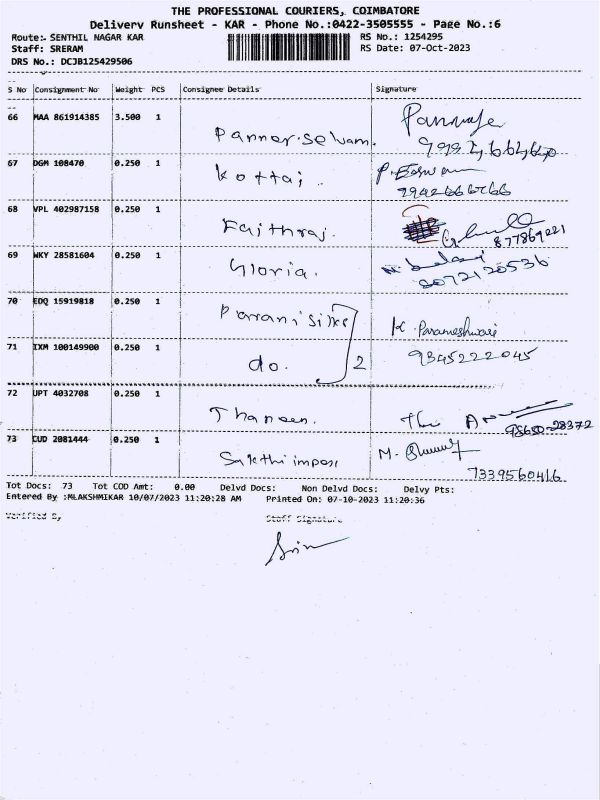 THE PROFESSIONAL COURIERS, COIMBATORE
Delivery Runsheet - KAR - Phone No.:0422-3505555 - Page No.:6
Route:- SENTHIL NAGAR KAR RS No.: 1254295
Staff: SRERAM RS Date: 07-Oct-2023
DRS No.: DCJB125429506
S No Consignment No Weight PCS Consignee Details Signature
66 MAA 861914385 3.500 1
Pannerselvam.
67 DGM 108470 0.250 1
Kottai
68 VPL 402987158 0.250 1
Faithraj.
69 WKY 28581604 0.250 1
Gloria.
8072120536
70 EDQ 15919818 0.250 1
K. Parameshwari
71 IXM 100149900 0.250 1
do. 2 9345222045
72 UPT 4032708 0.250 1
73 CUD 2081444 0.250 1
Sakthi impex
7339560416
Tot Docs: 73 Tot COD Amt: 0.00 Delvd Docs: Non Delvd Docs: Delvy Pts:
Entered By :MLAKSHMIKAR 10/07/2023 11:20:28 AM Printed On: 07-10-2023 11:20:36
Verified By Staff Signature